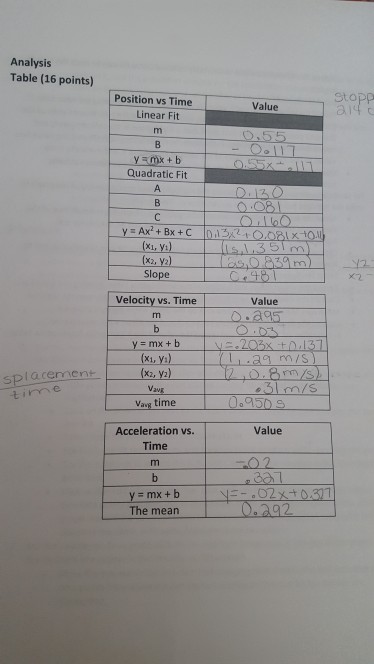 Analysis
Table (16 points)
Stopp
Position vs Time Value
Linear Fit
m 0.55
B - 0.117
y = mx + b 0.55x - .117
Quadratic Fit
A 0.130
B 0.081
C 0.160
y = Ax² + Bx + C 0.13x² + 0.081x +
(x₁, y₁) (1s, 1.351m)
(x₂, y₂) (2s, 0.839m)
Slope 0.481
y2
x2 -
Velocity vs. Time Value
m 0.295
b 0.03
y = mx + b y = .203x + 0.137
(x₁, y₁) (1, .29 m/s)
(x₂, y₂) (2, 0.8 m/s)
splacement
time
Vavg .31 m/s
Vavg time 0.950 s
Acceleration vs. Time Value
m -.02
b .327
y = mx + b y = -.02x + 0.327
The mean 0.292